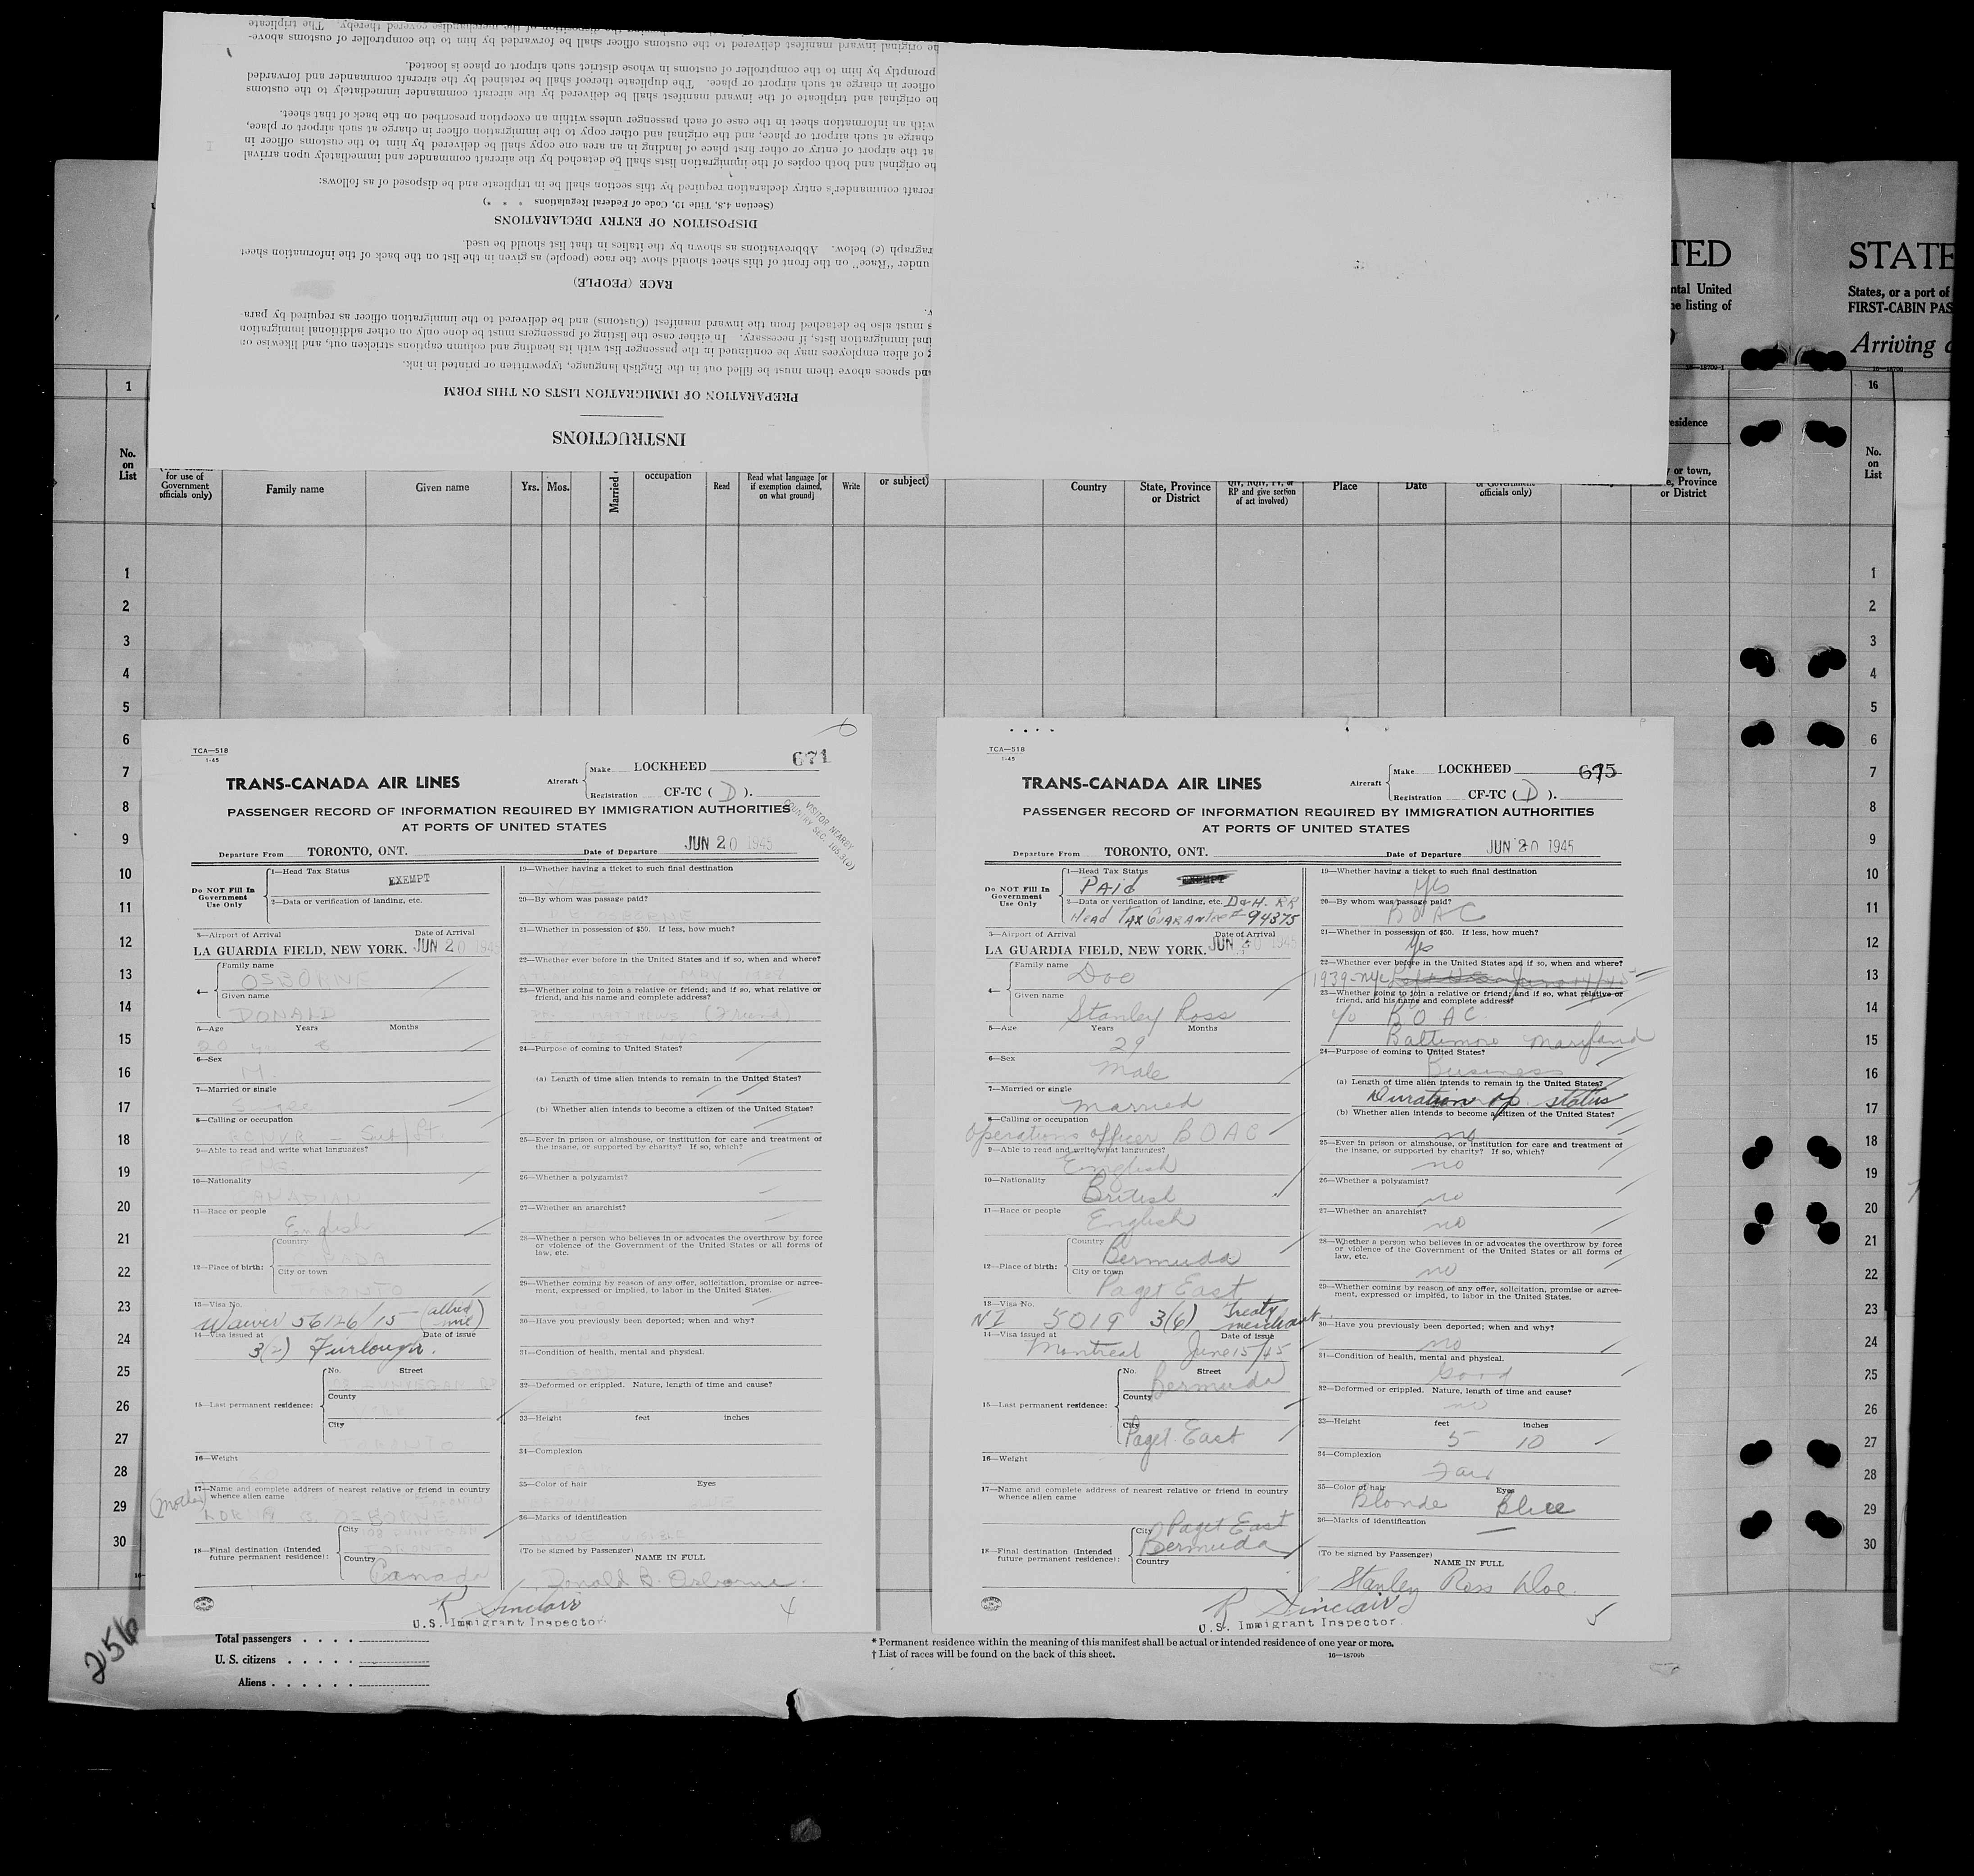 INSTRUCTIONS
PREPARATION OF IMMIGRATION LISTS ON THIS FORM
and spaces above them must be filled out in the English language, typewritten or printed in ink.
of alien employees may be continued in the passenger list with its heading and column captions stricken out, and likewise on
nal immigration lists, if necessary. In either case the listing of passengers must be done only on other additional immigration
s must also be detached from the inward manifest (Customs) and be delivered to the immigration officer as required by para-
RACE (PEOPLE)
under "Race" on the front of this sheet should show the race (people) as given in the list on the back of the information sheet
ragraph (c) below. Abbreviations as shown by the italics in that list should be used.
DISPOSITION OF ENTRY DECLARATIONS
(Section 4.8, Title 13, Code of Federal Regulations * * *)
rcraft commander's entry declaration required by this section shall be in triplicate and be disposed of as follows:
he original and both copies of the immigration lists shall be detached by the aircraft commander and immediately upon arrival
at the airport of entry or other first place of landing in an area one copy shall be delivered by him to the customs officer in
charge at such airport or place, and the original and other copy to the immigration officer in charge at such airport or place,
with an information sheet in the case of each passenger unless within an exception prescribed on the back of that sheet.
he original and triplicate of the inward manifest shall be delivered by the aircraft commander immediately to the customs
officer in charge at such airport or place. The duplicate thereof shall be retained by the aircraft commander and forwarded
promptly by him to the comptroller of customs in whose district such airport or place is located.
he original inward manifest delivered to the customs officer shall be forwarded by him to the comptroller of customs above-
the disposition of the merchandise covered thereby. The triplicate
TED STATE
ntal United States, or a port of
he listing of FIRST-CABIN PAS
Arriving
16—18700-1 16—18700
1 16
No. on List
for use of Government officials only)
Family name
Given name
Yrs. Mos.
Married
occupation
Read
Read what language [or if exemption claimed, on what ground]
Write
or subject)
Country
State, Province or District
RP and give section of act involved)
Place
Date
officials only)
esidence
or town, e, Province or District
No. on List
1 1
2 2
3 3
4 4
5 5
6 6
7 7
8 8
9 9
10 10
11 11
12 12
13 13
14 14
15 15
16 16
17 17
18 18
19 19
20 20
21 21
22 22
23 23
24 24
25 25
26 26
27 27
28 28
29 29
30 30
TCA—518
1-45
671
TRANS-CANADA AIR LINES
Aircraft Make LOCKHEED
Registration CF-TC ( D ).
PASSENGER RECORD OF INFORMATION REQUIRED BY IMMIGRATION AUTHORITIES
AT PORTS OF UNITED STATES
VISITOR NEARBY
COUNTRY SEC. 105.3(b)
Departure From TORONTO, ONT. Date of Departure JUN 20 1945
Do NOT Fill In Government Use Only
1—Head Tax Status EXEMPT
2—Data or verification of landing, etc.
3—Airport of Arrival Date of Arrival
LA GUARDIA FIELD, NEW YORK. JUN 20 1945
4— Family name
OSBORNE
Given name
DONALD
5—Age Years Months
20
6—Sex
M.
7—Married or single
Single
8—Calling or occupation
RCNVR — Sub/Lt.
9—Able to read and write what languages?
ENG
10—Nationality
CANADIAN
11—Race or people
English
12—Place of birth: Country
CANADA
City or town
TORONTO
13—Visa No.
Waiver 56126/15 — (allied mil)
14—Visa issued at Date of issue
3(-) Furlough.
15—Last permanent residence: No. Street
County
City
TORONTO
16—Weight
17—Name and complete address of nearest relative or friend in country whence alien came
(mother)
OSBORNE
18—Final destination (Intended future permanent residence): City
TORONTO
Country
Canada
19—Whether having a ticket to such final destination
20—By whom was passage paid?
OSBORNE
21—Whether in possession of $50. If less, how much?
22—Whether ever before in the United States and if so, when and where?
23—Whether going to join a relative or friend; and if so, what relative or friend, and his name and complete address?
MATTHEWS (Friend)
24—Purpose of coming to United States?
(a) Length of time alien intends to remain in the United States?
(b) Whether alien intends to become a citizen of the United States?
25—Ever in prison or almshouse, or institution for care and treatment of the insane, or supported by charity? If so, which?
26—Whether a polygamist?
27—Whether an anarchist?
28—Whether a person who believes in or advocates the overthrow by force or violence of the Government of the United States or all forms of law, etc.
29—Whether coming by reason of any offer, solicitation, promise or agreement, expressed or implied, to labor in the United States.
30—Have you previously been deported; when and why?
31—Condition of health, mental and physical.
32—Deformed or crippled. Nature, length of time and cause?
33—Height feet inches
34—Complexion
35—Color of hair Eyes
36—Marks of identification
(To be signed by Passenger)
NAME IN FULL
Donald B. Osborne.
R Sinclair
U.S. Immigrant Inspector.
4
TCA—518
1-45
675
TRANS-CANADA AIR LINES
Aircraft Make LOCKHEED
Registration CF-TC ( D ).
PASSENGER RECORD OF INFORMATION REQUIRED BY IMMIGRATION AUTHORITIES
AT PORTS OF UNITED STATES
Departure From TORONTO, ONT. Date of Departure JUN 20 1945
Do NOT Fill In Government Use Only
1—Head Tax Status
PAID EXEMPT
2—Data or verification of landing, etc. D&H. RR
Head Tax Guarantee #94375
3—Airport of Arrival Date of Arrival
LA GUARDIA FIELD, NEW YORK. JUN 20 1945
4— Family name
Doe
Given name
Stanley Ross
5—Age Years Months
29
6—Sex
Male
7—Married or single
Married
8—Calling or occupation
Operations officer BOAC
9—Able to read and write what languages?
English
10—Nationality
British
11—Race or people
English
12—Place of birth: Country
Bermuda
City or town
Paget East
13—Visa No.
NI 5019 3(6) Treaty merchant
14—Visa issued at Date of issue
Montreal June 15/45
15—Last permanent residence: No. Street
Bermuda
County
City
Paget East
16—Weight
17—Name and complete address of nearest relative or friend in country whence alien came
18—Final destination (Intended future permanent residence): City
Paget East
Bermuda
Country
19—Whether having a ticket to such final destination
Yes
20—By whom was passage paid?
BOAC
21—Whether in possession of $50. If less, how much?
Yes
22—Whether ever before in the United States and if so, when and where?
1939 - NYC Left USA June 14/45
23—Whether going to join a relative or friend; and if so, what relative or friend, and his name and complete address?
c/o BOAC.
Baltimore Maryland
24—Purpose of coming to United States?
Business
(a) Length of time alien intends to remain in the United States?
Duration of status
(b) Whether alien intends to become a citizen of the United States?
no
25—Ever in prison or almshouse, or institution for care and treatment of the insane, or supported by charity? If so, which?
no
26—Whether a polygamist?
no
27—Whether an anarchist?
no
28—Whether a person who believes in or advocates the overthrow by force or violence of the Government of the United States or all forms of law, etc.
no
29—Whether coming by reason of any offer, solicitation, promise or agreement, expressed or implied, to labor in the United States.
30—Have you previously been deported; when and why?
no
31—Condition of health, mental and physical.
Good
32—Deformed or crippled. Nature, length of time and cause?
no
33—Height feet inches
5 10
34—Complexion
Fair
35—Color of hair Eyes
Blonde Blue
36—Marks of identification
—
(To be signed by Passenger)
NAME IN FULL
Stanley Ross Doe.
R Sinclair
U.S. Immigrant Inspector.
5
256
Total passengers . . . .
U. S. citizens . . . . .
Aliens . . . . . .
* Permanent residence within the meaning of this manifest shall be actual or intended residence of one year or more.
† List of races will be found on the back of this sheet.
16—18700b